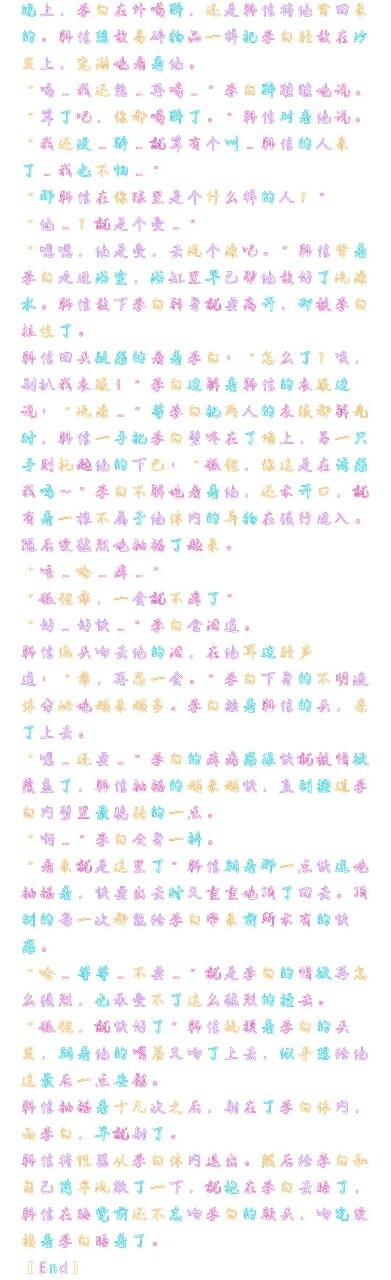 晚上，李白在外喝醉，还是韩信将他背回来
的。韩信想放易碎物品一样把李白轻放在沙
发上，宠溺地看着他。
“嗝…我还能…再喝…”李白醉醺醺地说。
“算了吧，你都喝醉了。”韩信对着他说。
“我还没…醉…就算有个叫…韩信的人来
了…我也不怕…”
“那韩信在你眼里是个什么样的人？”
“他…？就是个受…”
“嗯嗯，他是受，去洗个澡吧。”韩信背着
李白走进浴室，浴缸里早已帮他放好了洗澡
水。韩信放下李白转身就要离开，却被李白
拉住了。
韩信回头疑惑的看着李白：“怎么了？唉，
别扒我衣服！”李白边解着韩信的衣服边
说：“洗澡…”等李白把两人的衣服都解光
时，韩信一手把李白壁咚在了墙上，另一只
手则托起他的下巴：“狐狸，你这是在诱惑
我吗～”李白不解地看着他，还未开口，就
有着一根不属于他体内的异物在强行进入。
随后便猛烈地抽插了起来。
“唔…哈…疼…”
“狐狸乖，一会就不疼了”
“好…好快…”李白含泪道。
韩信低头吻去他的泪，在他耳边轻声
道：“乖，再忍一会。”李白下身的不明液
体分泌地越来越多。李白搂着韩信的头，亲
了上去。
“嗯…还要…”李白的疼痛感很快就被情欲
覆盖了，韩信抽插的越来越快，直到撞这李
白内壁里最脆弱的一点。
“啊…”李白全身一抖。
“看来就是这里了”韩信朝着那一点快速地
抽插着，快要出去时又重重地顶了回去。顶
到的每一次都能给李白带来前所未有的快
感。
“哈…等等…不要…”就是李白的情欲再怎
么强烈，也承受不了这么强烈的撞击。
“狐狸，就快好了”韩信抚摸着李白的头
发，朝着他的嘴唇又吻了上去，似乎想给他
这最后一点安慰。
韩信抽插着十几次之后，射在了李白体内，
而李白，早就射了。
韩信将性器从李白体内退出。然后给李白和
自己简单洗漱了一下，就抱在李白去睡了，
韩信在睡觉前还不忘吻李白的额头，吻完便
搂着李白睡着了。
［End］